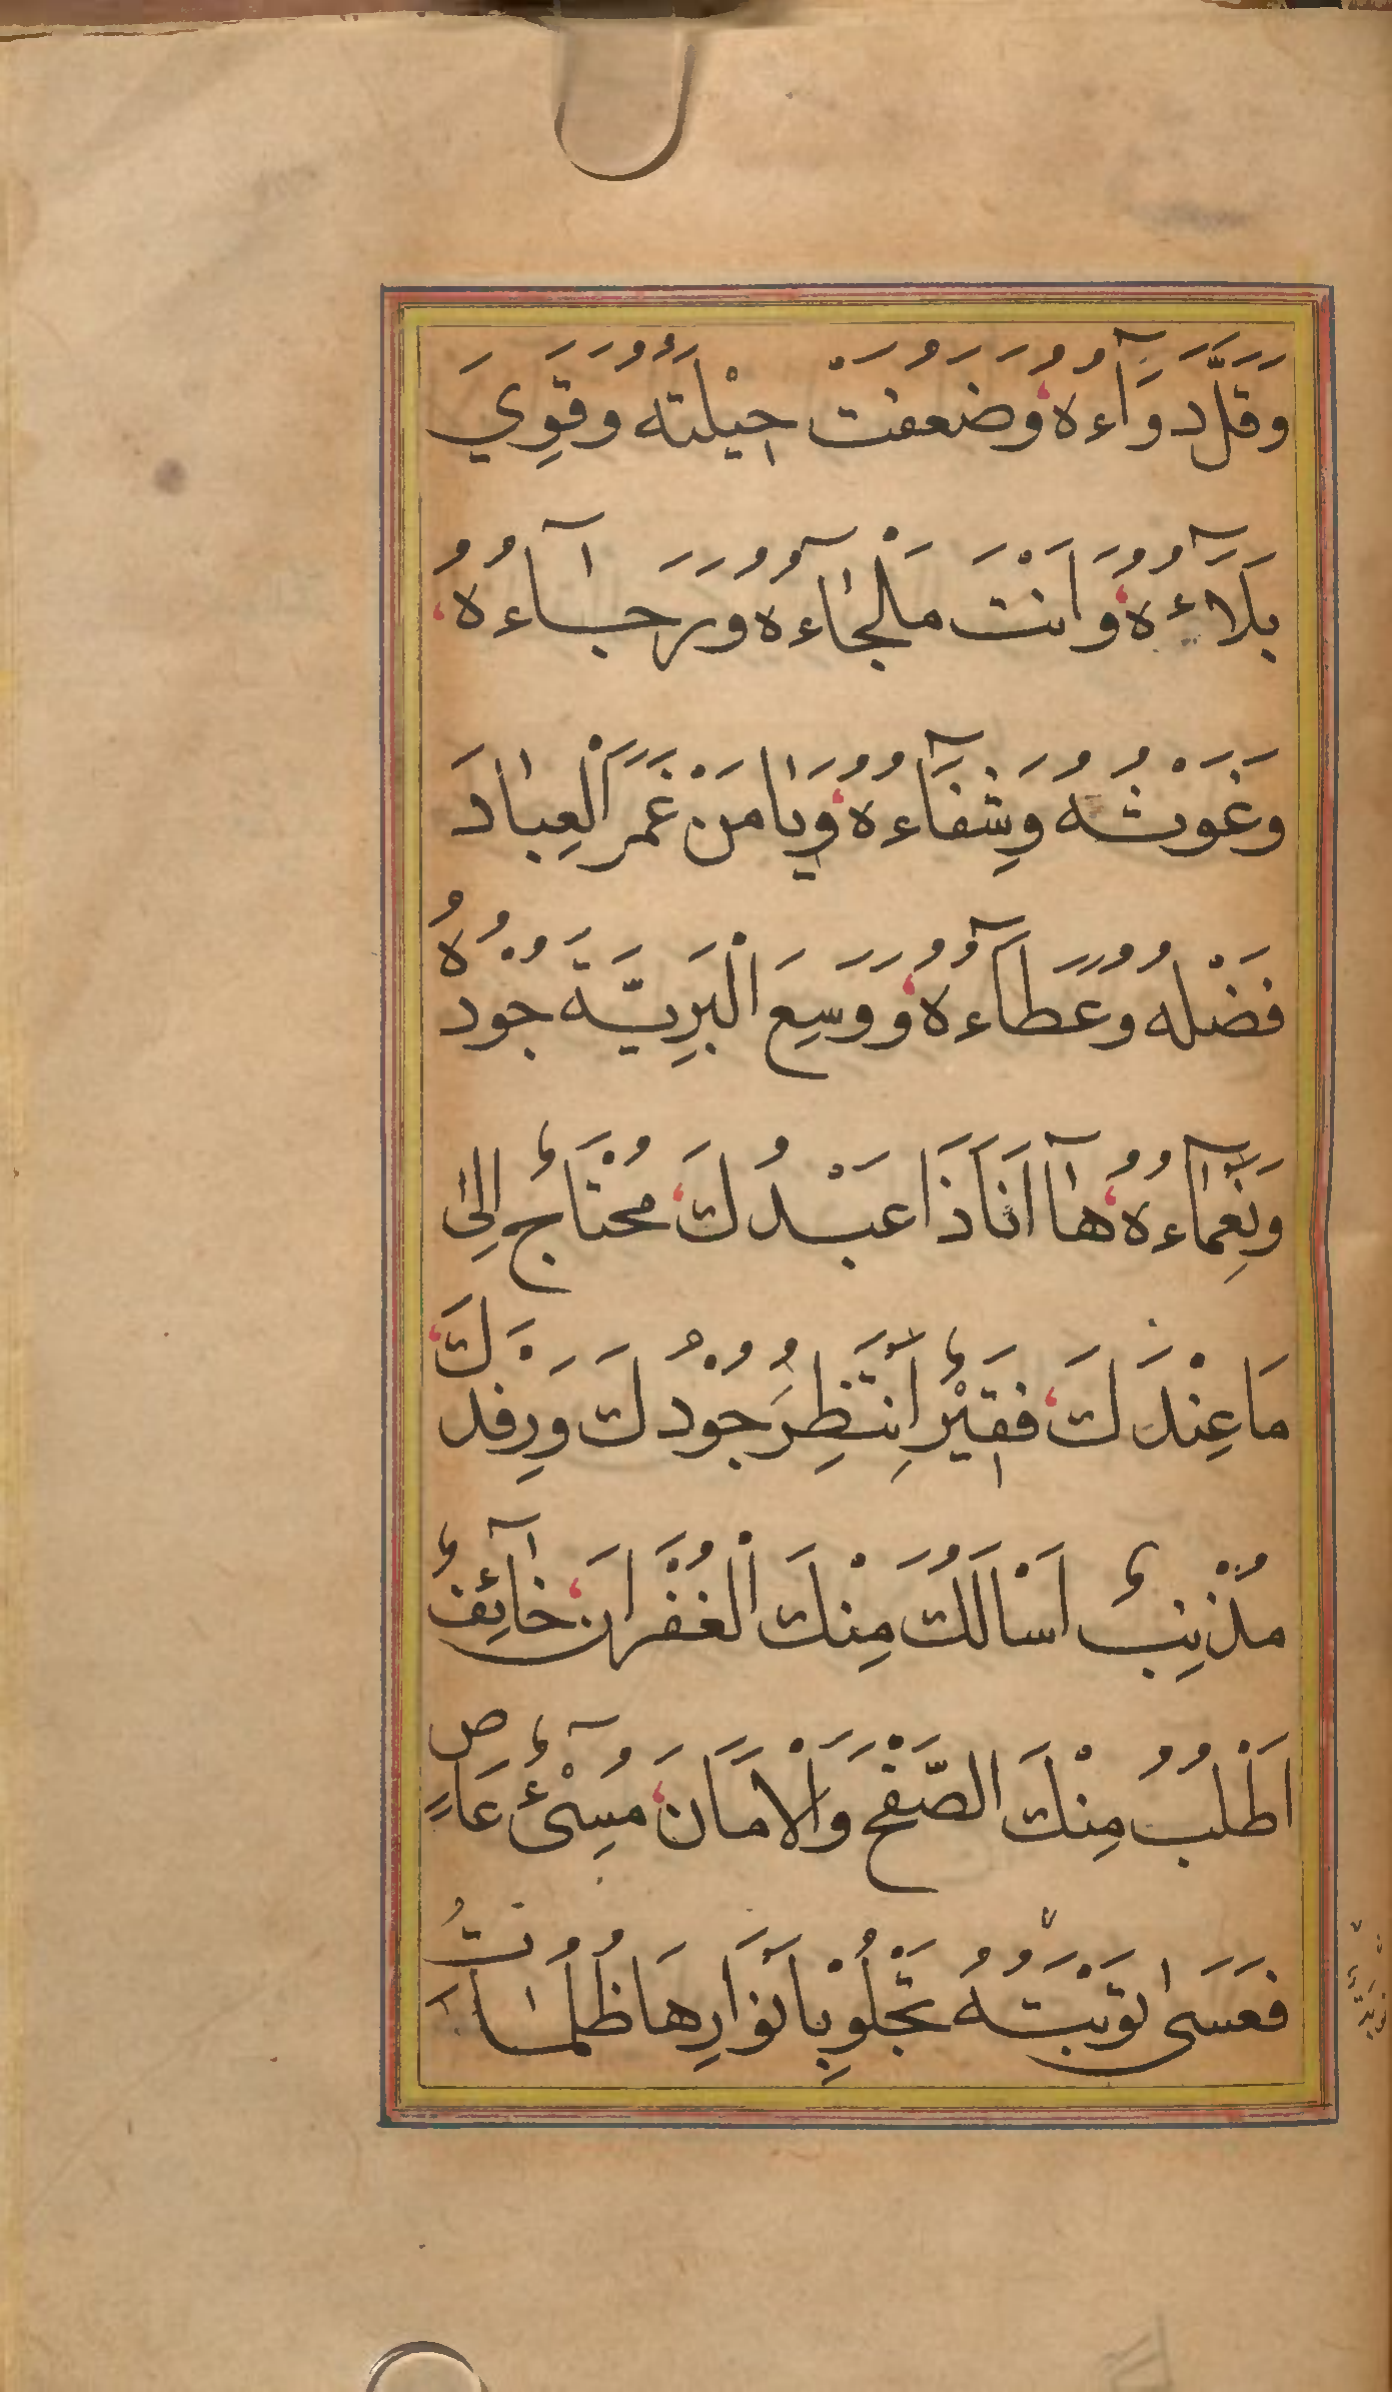 وَقَلَّ دَوَآءُهُ، وَضَعُفَتْ حِيْلَتُهُ وَقَوِيَ
بَلَآءُهُ، وَاَنْتَ مَلْجَآءُهُ وَرَجَآءُهُ،
وَغَوْثُهُ وَشِفَآءُهُ، وَيَا مَنْ غَمَرَ الْعِبَادَ
فَضْلُهُ وَعَطَآءُهُ، وَوَسِعَ الْبَرِيَّةَ جُوْدُهُ
وَنَعْمَآءُهُ، هَآ اَنَا ذَا عَبْدُكَ، مُحْتَاجٌ اِلٰى
مَا عِنْدَكَ، فَقِيْرٌ اَنْتَظِرُ جُوْدُكَ وَرِفْدَكَ،
مُذْنِبٌ اَسْاَلُكَ مِنْكَ الْغُفْرَانَ، خَآئِفٌ
اَطْلُبُ مِنْكَ الصَّفْحَ وَالْاَمَانَ، مُسِيْٓئٌ عَاصٍ
فَعَسٰى تَوْبَتُهُ تَجْلُوْ بِاَنْوَارِهَا ظُلُمَاتُ